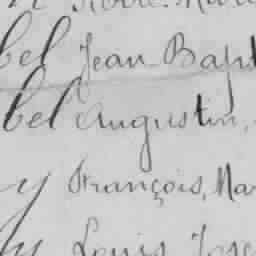 bel Jean-Bapt
bel Augustin,
y François, Mar
y Louis Jose